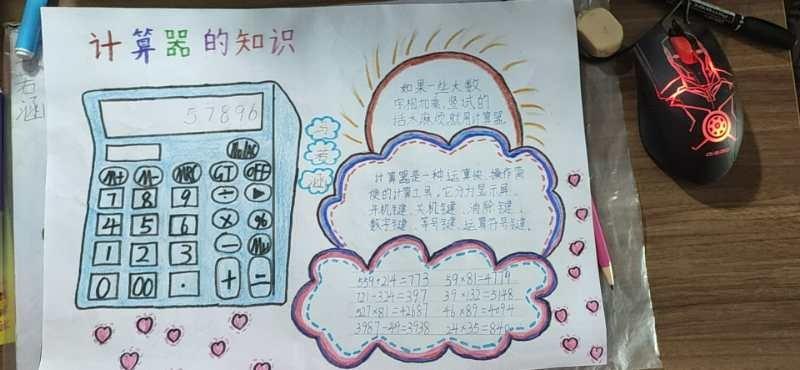 计算器的知识
57896
如果一些大数
字相加减,竖式的
话太麻烦,就用计算器
计算器是一种运算快、操作简
便的计算工具,它分分显示屏、
开机键、关机键、消除键、
数字键、等号键、运算符号键、
ON/AC
M+ M- MRC GT OFF
7 8 9 ÷ ▶
4 5 6 × %
1 2 3 - Mu
0 00 · + =
559+214=773 59×81=4779
721-324=397
527×81=42687 46×89=4094
3987-49=3938 24×35=840